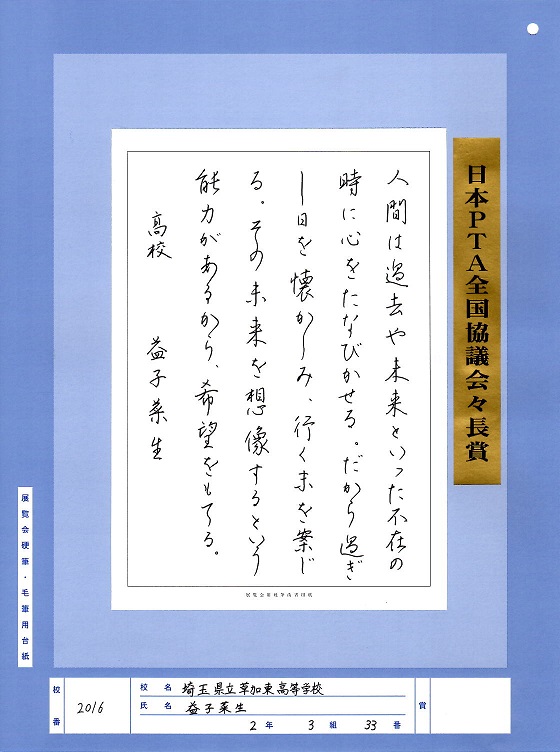 日本PTA全国協議会々長賞
人間は過去や未来といった不在の
時に心をたなびかせる。だから過ぎ
し日を懐かしみ、行く末を案じ
る。その未来を想像するという
能力があるから、希望をもてる。
高校　益子菜生
展覧会硬筆・毛筆用台紙
校番 2016
校名 埼玉県立草加東高等学校
氏名 益子菜生
2年 3組 33番
賞